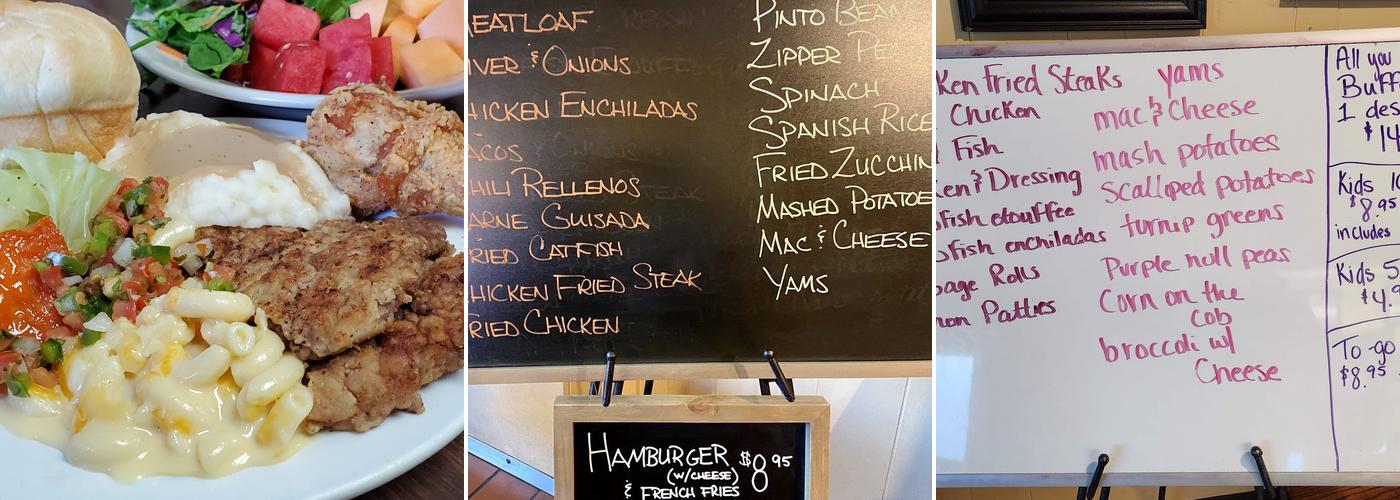 EATLOAF
IVER & ONIONS
HICKEN ENCHILADAS
ACOS
HILI RELLENOS
ARNE GUISADA
RIED CATFISH
HICKEN FRIED STEAK
RIED CHICKEN
PINTO BEAN
ZIPPER PEA
SPINACH
SPANISH RICE
FRIED ZUCCHIN
MASHED POTATOE
MAC & CHEESE
YAMS
HAMBURGER $8.95
(W/CHEESE)
& FRENCH FRIES
ken Fried Steaks
Chicken
Fish
ken & Dressing
fish etouffee
fish enchiladas
bage Rolls
mon Patties
yams
mac & Cheese
mash potatoes
Scalloped potatoes
turnip greens
Purple hull peas
Corn on the
Cob
broccoli w/
Cheese
All you
Buff
1 des
$14
Kids 10
$8.95
includes
Kids 5
$4.9
To-go
$8.95